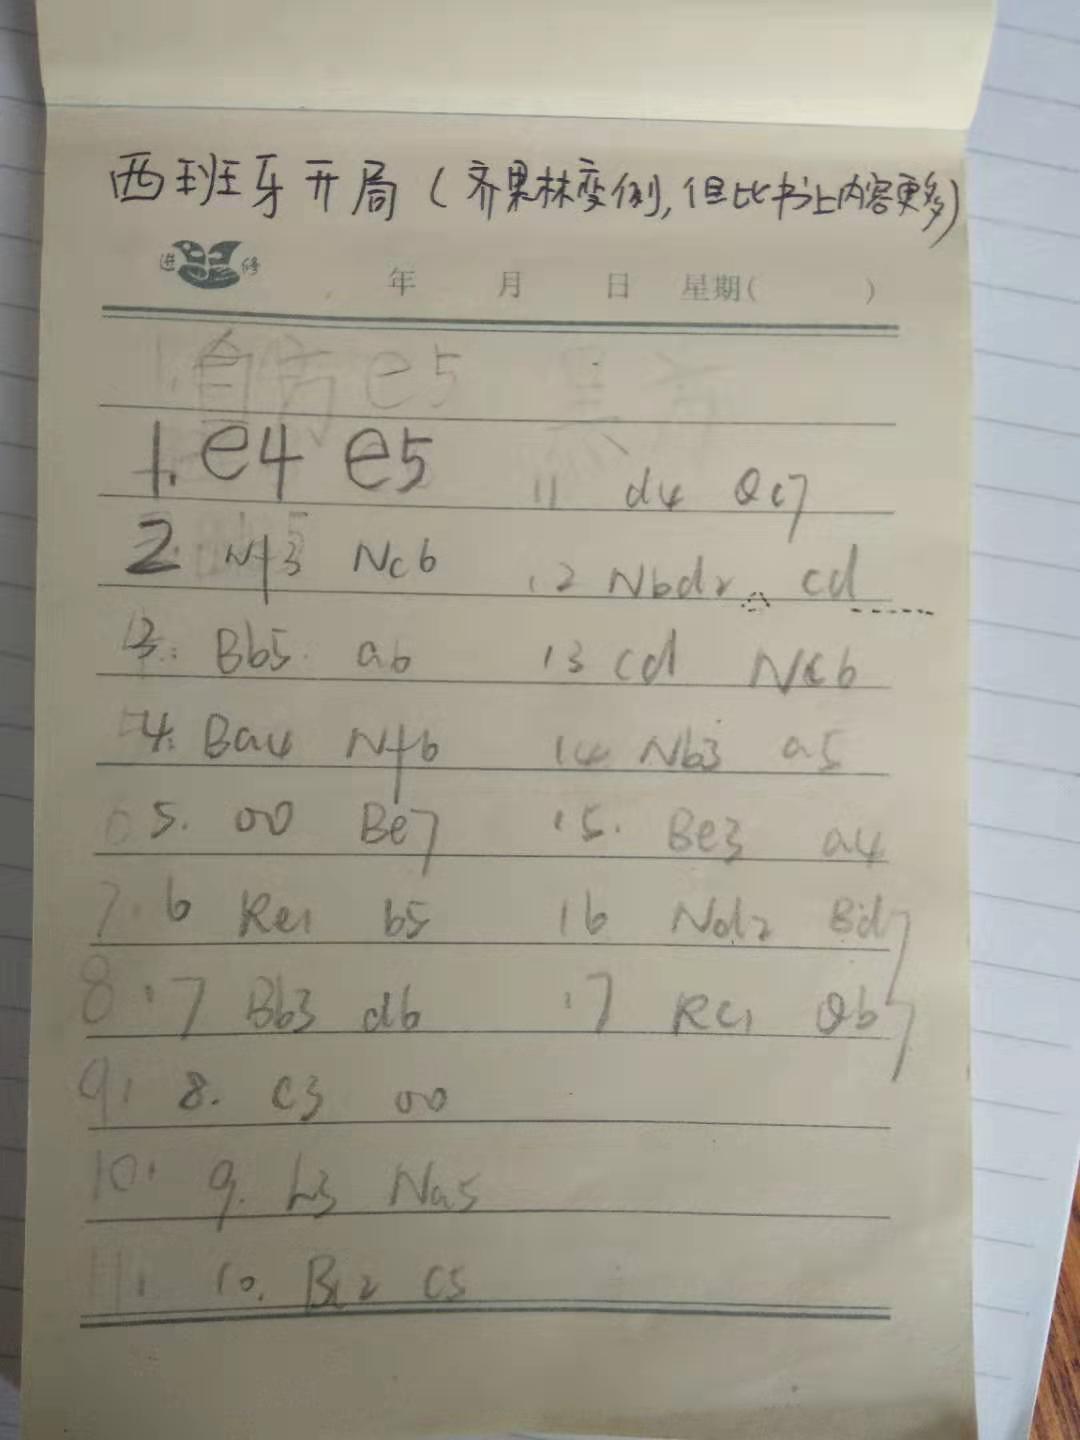 西班牙开局(齐果林变例,但比书上内容更多)
进修
年 月 日 星期( )
1. 白方 e5 黑方
1. e4 e5
2 Nf3 Nc6
3. Bb5 a6
4. Ba4 Nf6
5. 00 Be7
7. 6 Re1 b5
8. 7 Bb3 d6
9. 8. c3 00
10. 9. h3 Na5
11. 10. Bc2 c5
11 d4 Qc7
12 Nbd2 cd
13 cd Nc6
14 Nb3 a5
15. Be3 a4
16 Nd2 Bd7
17 Rc1 Qb7